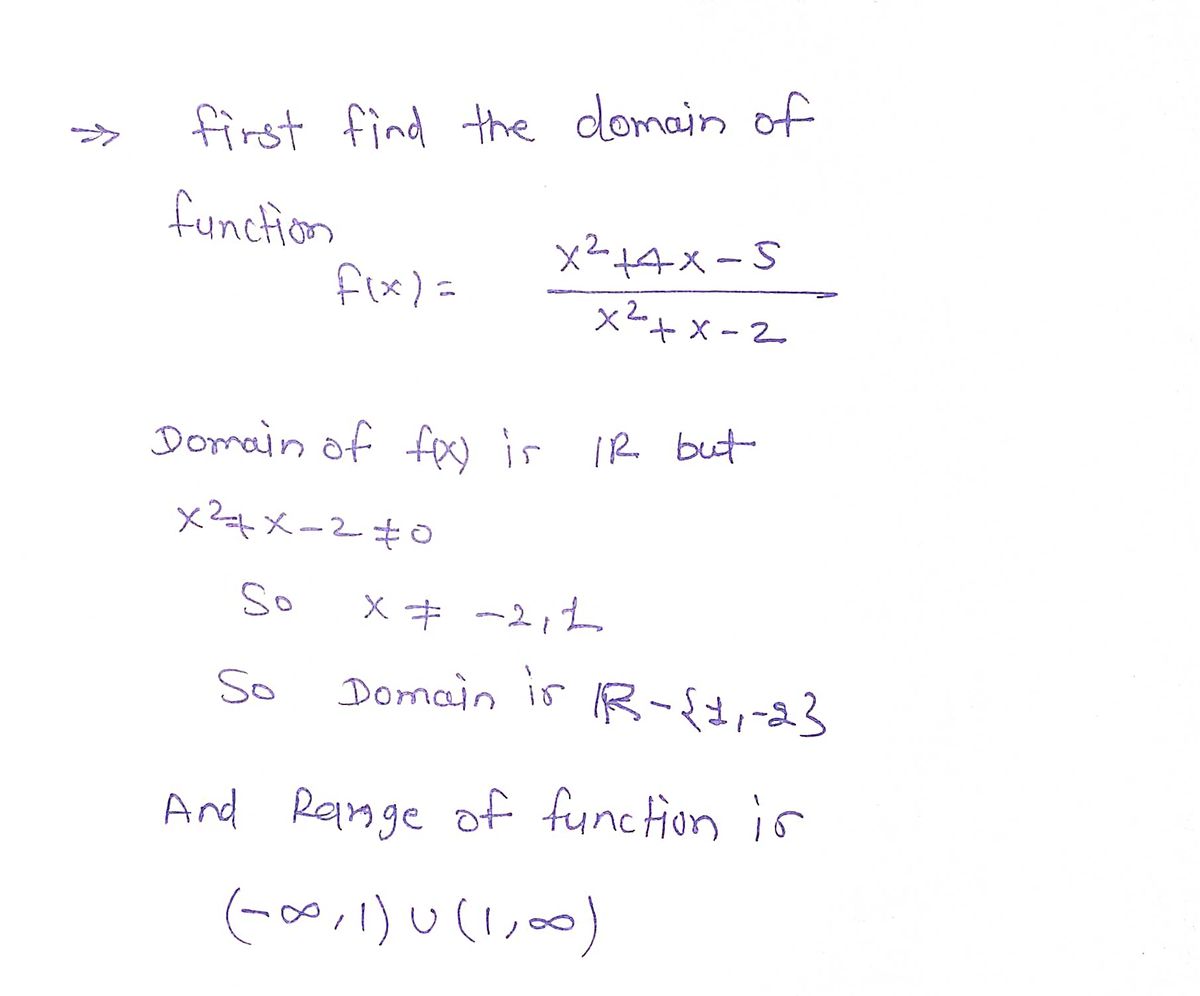 →> first find the domain of
function
f(x) = x²+4x-5 / x²+x-2
Domain of f(x) is IR but
x²+x-2≠0
So x ≠ -2,1
So Domain is IR-{1,-2}
And Range of function is
(-∞,1) ∪ (1,∞)